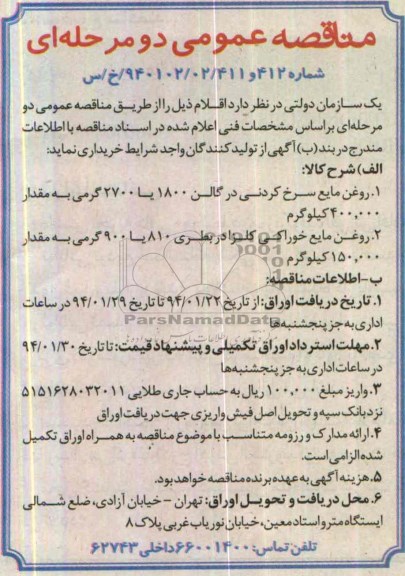 مناقصه عمومی دو مرحله‌ای
شماره ۴۱۲ و ۹۴۰۱۰۲/۰۲/۴۱۱/خ/س
یک سازمان دولتی در نظر دارد اقلام ذیل را از طریق مناقصه عمومی دو
مرحله‌ای براساس مشخصات فنی اعلام شده در اسناد مناقصه با اطلاعات
مندرج در بند (ب) آگهی از تولیدکنندگان واجد شرایط خریداری نماید:
الف) شرح کالا:
۱. روغن مایع سرخ کردنی در گالن ۱۸۰۰ یا ۲۷۰۰ گرمی به مقدار
۴۰۰,۰۰۰ کیلوگرم
۲. روغن مایع خوراکی کلزا در بطری ۸۱۰ یا ۹۰۰ گرمی به مقدار
۱۵۰,۰۰۰ کیلوگرم
ب- اطلاعات مناقصه:
۱. تاریخ دریافت اوراق: از تاریخ ۹۴/۰۱/۲۲ تا تاریخ ۹۴/۰۱/۲۹ در ساعات
اداری به جز پنجشنبه‌ها
ParsNamadData
۲. مهلت استرداد اوراق تکمیلی و پیشنهاد قیمت: تا تاریخ ۹۴/۰۱/۳۰
در ساعات اداری به جز پنجشنبه‌ها
۳. واریز مبلغ ۱۰۰,۰۰۰ ریال به حساب جاری طلایی ۵۱۵۱۶۲۸۰۳۲۰۱۱
نزد بانک سپه و تحویل اصل فیش واریزی جهت دریافت اوراق
۴. ارائه مدارک و رزومه متناسب با موضوع مناقصه به همراه اوراق تکمیل
شده الزامی است.
۵. هزینه آگهی به عهده برنده مناقصه خواهد بود.
۶. محل دریافت و تحویل اوراق: تهران - خیابان آزادی، ضلع شمالی
ایستگاه مترو استاد معین، خیابان نوریاب غربی پلاک ۸
تلفن تماس: ۶۶۰۰۱۴۰۰ داخلی ۶۲۷۴۳